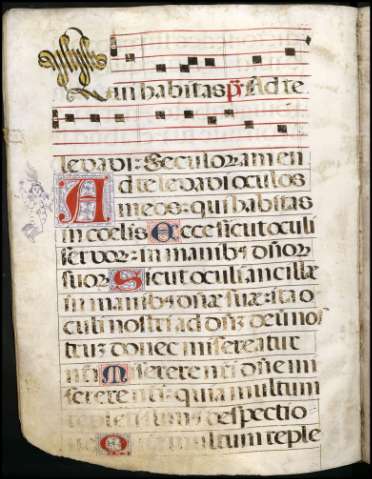 Qui habitas ps̄ Ad te
levavi: Seculorum amen
Ad te levavi oculos
meos: qui habitas
in coelis Ecce sicut oculi
servor: in manibus dñor
suor Sicut oculi ancillæ
in manibus dñæ suæ: ita o
culi nostri ad dñz deum nos
truz donec misereatur
nri Miserere nri dñe mi
serere nri: quia multum
repleti sumus despectio
ne Quia multum reple